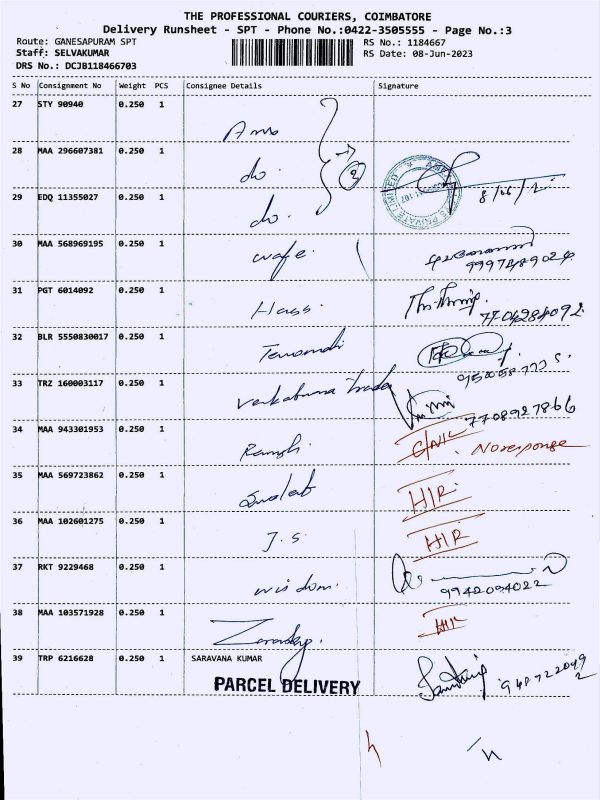 THE PROFESSIONAL COURIERS, COIMBATORE
Delivery Runsheet - SPT - Phone No.:0422-3505555 - Page No.:3
Route: GANESAPURAM SPT
RS No.: 1184667
Staff: SELVAKUMAR
RS Date: 08-Jun-2023
DRS No.: DCJB118466703
S No Consignment No Weight PCS Consignee Details Signature
27 STY 90940 0.250 1
28 MAA 296607381 0.250 1 do. 2
PRIVATE LIMITED
29 EDQ 11355027 0.250 1 do.
30 MAA 568969195 0.250 1 wafe.
31 PGT 6014092 0.250 1 Hass. 7704284092
32 BLR 5550830017 0.250 1
33 TRZ 160003117 0.250 1 7708927866
34 MAA 943301953 0.250 1 No response
35 MAA 569723862 0.250 1 HIR
36 MAA 102601275 0.250 1 J.S. HIR
37 RKT 9229468 0.250 1 wisdom. 9942094022
38 MAA 103571928 0.250 1
39 TRP 6216628 0.250 1 SARAVANA KUMAR
PARCEL DELIVERY